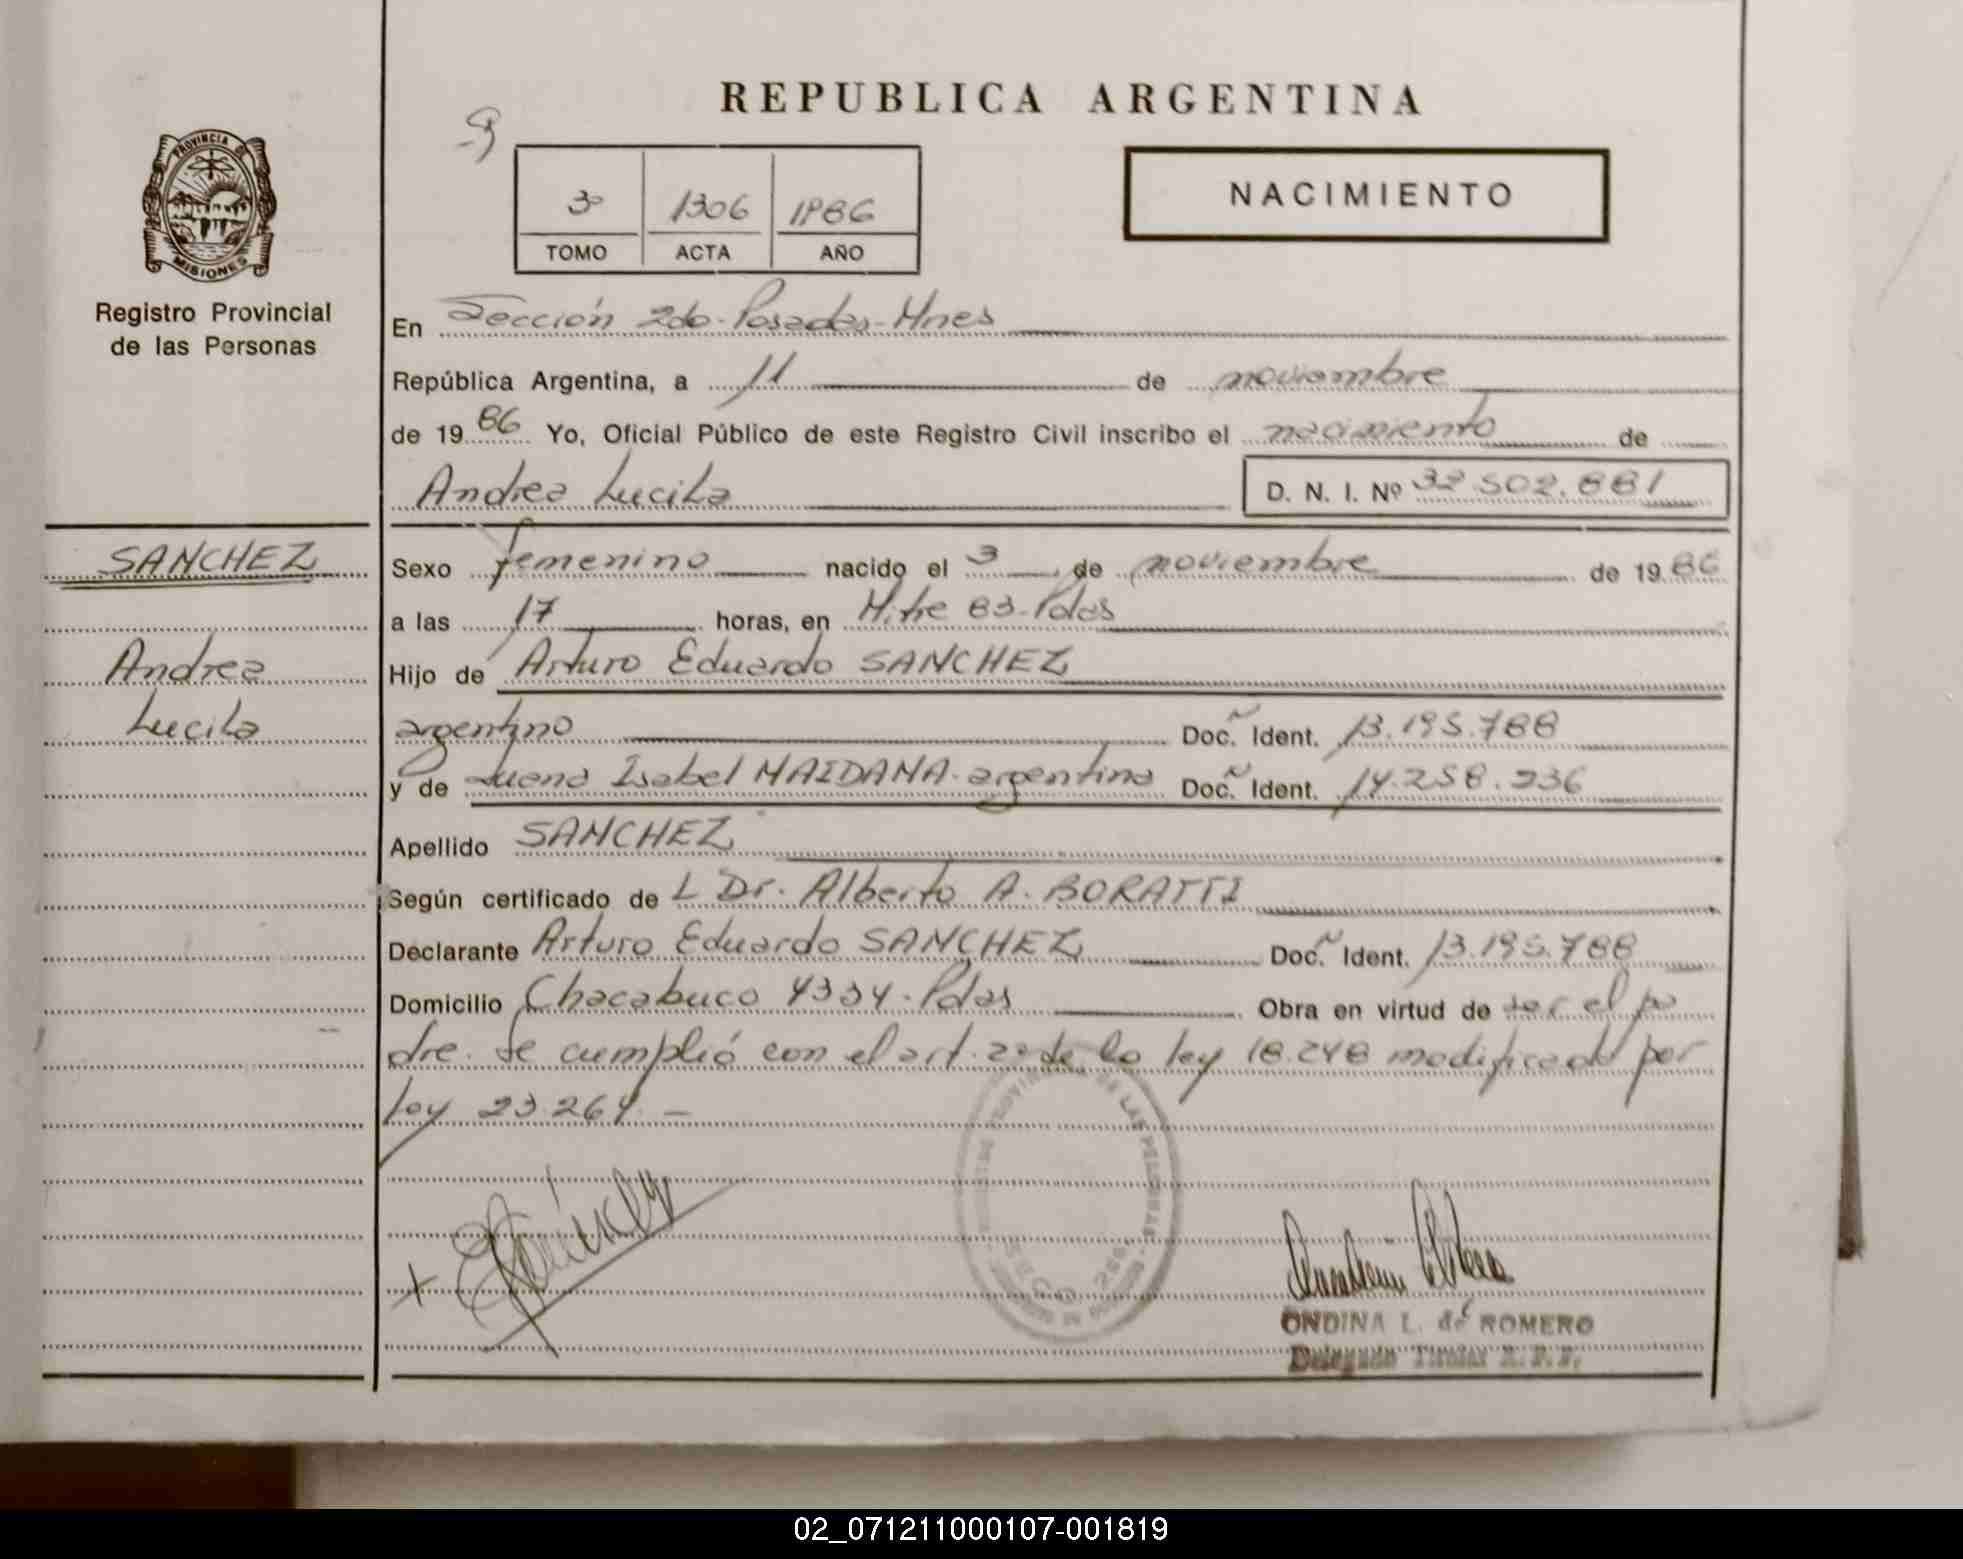 REPUBLICA ARGENTINA
PROVINCIA DE
MISIONES
Registro Provincial
de las Personas
3º 1306 1986
TOMO ACTA AÑO
NACIMIENTO
En Sección 2do-Posadas-Mnes
República Argentina, a 11 de noviembre
de 1986 Yo, Oficial Público de este Registro Civil inscribo el nacimiento de
Andrea Lucila D. N. I. Nº 32.502.881
SANCHEZ
Andrea
Lucila
Sexo femenino nacido el 3 de noviembre de 1986
a las 17 horas, en Mitre 83-Pdas
Hijo de Arturo Eduardo SANCHEZ
argentino Doc. Ident. 13.195.788
y de Juana Isabel MAIDANA-argentina Doc. Ident. 14.258.236
Apellido SANCHEZ
Según certificado de L Dr. Alberto A. BORATTI
Declarante Arturo Eduardo SANCHEZ Doc. Ident. 13.195.788
Domicilio Chacabuco 4334-Pdas Obra en virtud de ser el pa
dre. Se cumplió con el art. 2º de la ley 18.248 modificado por
ley 23.264.-
ONDINA L. de ROMERO
Delegado Titular R. P. P.
02_071211000107-001819